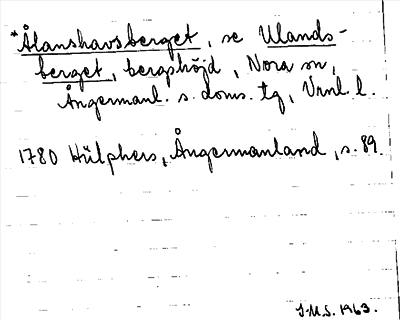 *Ålanshavsberget, se Ulands-
berget, bergshöjd, Nora sn,
Ångermanl. s. doms. tg, Vnl. l.
1780 Hülphers, Ångermanland, s. 89.
J.M.S. 1963.